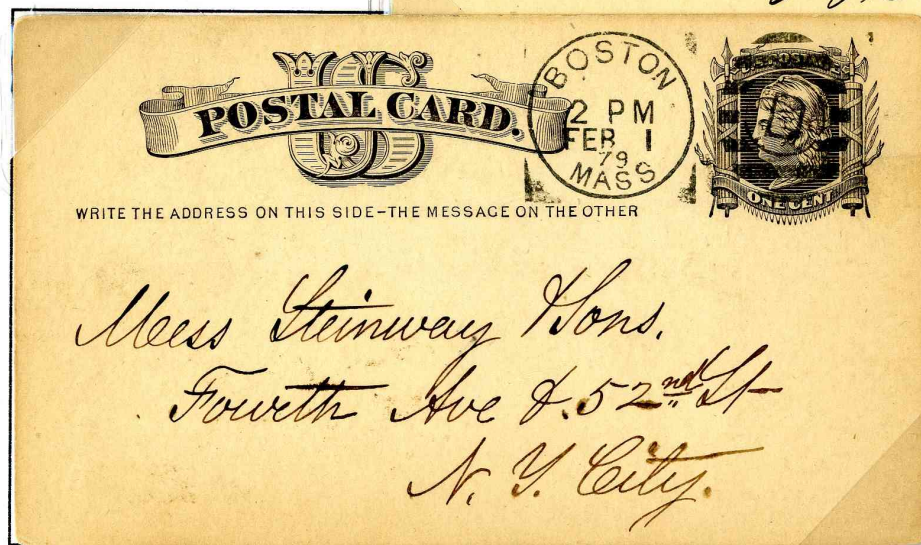 US
POSTAL CARD.
BOSTON
2 PM
FEB 1
79
MASS
ONE CENT
WRITE THE ADDRESS ON THIS SIDE-THE MESSAGE ON THE OTHER
Mess Steinway & Sons.
Fourth Ave & 52nd St
N. Y. City.